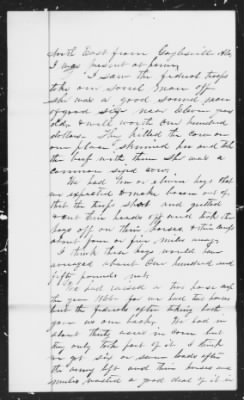 North East from Gaylesvill Ala
I was present at
I saw the federal troops
take our Sorrel mare off
she was a good sound mare
of good size near Eleven years
old & will worth One hundred
dollars. They killed the cow on
our place & skinned her and took
the beef with them She was a
common sized cow.
We had ten or eleven hogs that
we expected to make bacon out of
that the troops shot and gutted
& cut their heads off and took the
hogs off on their horses & this camp
about four or five miles away
I think these hogs would have
averaged about One hundred and
fifty pounds net.
We had raised a two horse crop
the year 1864 for we had two horses
but the federals after taking both
gave us one back. We had in
about thirty acres in corn but
they only took part of it. I think
we got six or seven loads after
the army left and their horses and
mules wasted a good deal of it in